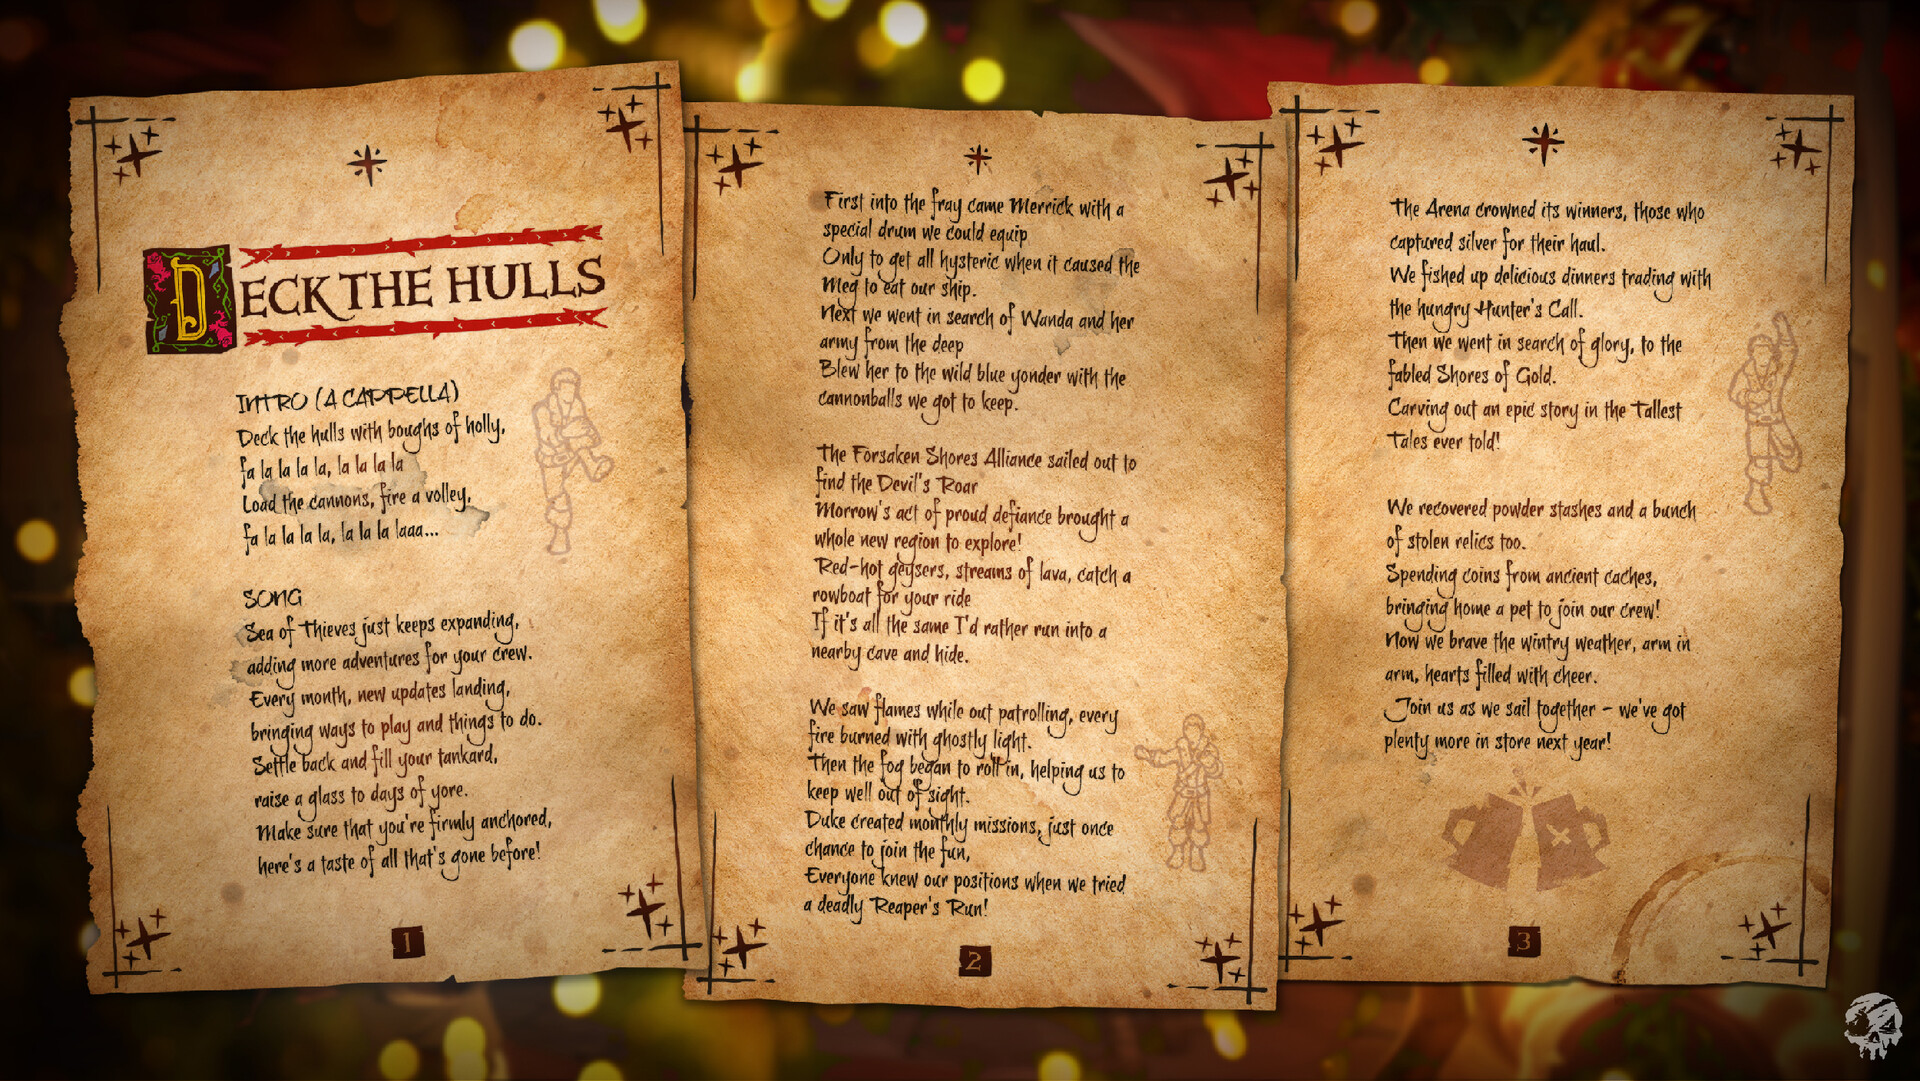 DECK THE HULLS
INTRO (A CAPPELLA)
Deck the hulls with boughs of holly,
fa la la la la, la la la la
Load the cannons, fire a volley,
fa la la la la, la la la laaa...
SONG
Sea of Thieves just keeps expanding,
adding more adventures for your crew.
Every month, new updates landing,
bringing ways to play and things to do.
Settle back and fill your tankard,
raise a glass to days of yore.
Make sure that you're firmly anchored,
here's a taste of all that's gone before!
1
First into the fray came Merrick with a
special drum we could equip
Only to get all hysteric when it caused the
Meg to eat our ship.
Next we went in search of Wanda and her
army from the deep
Blew her to the wild blue yonder with the
cannonballs we got to keep.
The Forsaken Shores Alliance sailed out to
find the Devil's Roar
Morrow's act of proud defiance brought a
whole new region to explore!
Red-hot geysers, streams of lava, catch a
rowboat for your ride
If it's all the same I'd rather run into a
nearby cave and hide.
We saw flames while out patrolling, every
fire burned with ghostly light.
Then the fog began to roll in, helping us to
keep well out of sight.
Duke created monthly missions, just once
chance to join the fun,
Everyone knew our positions when we tried
a deadly Reaper's Run!
2
The Arena crowned its winners, those who
captured silver for their haul.
We fished up delicious dinners trading with
the hungry Hunter's Call.
Then we went in search of glory, to the
fabled Shores of Gold.
Carving out an epic story in the Tallest
Tales ever told!
We recovered powder stashes and a bunch
of stolen relics too.
Spending coins from ancient caches,
bringing home a pet to join our crew!
Now we brave the wintry weather, arm in
arm, hearts filled with cheer.
Join us as we sail together – we've got
plenty more in store next year!
3